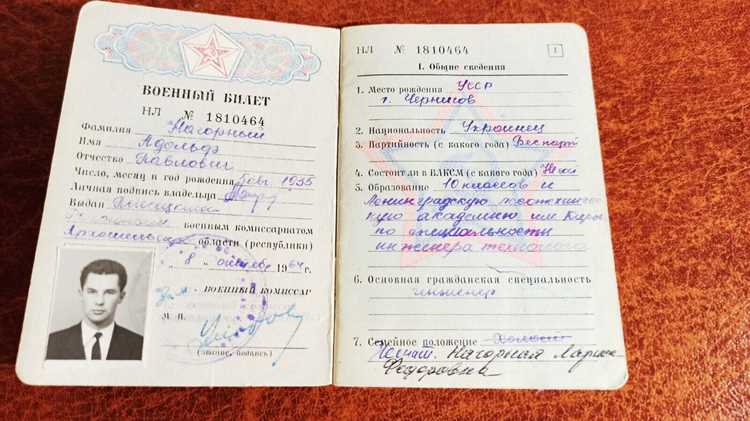 ВОЕННЫЙ БИЛЕТ
НЛ № 1810464
Фамилия Нагорный
Имя Адольф
Отчество Павлович
Число, месяц и год рождения
Личная подпись владельца
Выдан
военным комиссариатом
области (республики)
" 8 " 19 г.
ВОЕННЫЙ КОМИССАР
М. П.
(звание, подпись)
НЛ № 1810464 1
I. Общие сведения
1. Место рождения УССР
г. Чернигов
2. Национальность Украинец
3. Партийность (с какого года) Беспарт
4. Состоит ли в ВЛКСМ (с какого года)
5. Образование 10 классов и
Ленинградскую лесотехничес
кую академию им Кирова
по специальности
инженера технолога
6. Основная гражданская специальность
инженер
7. Семейное положение Холост
Нагорная Лариса
Федоровна